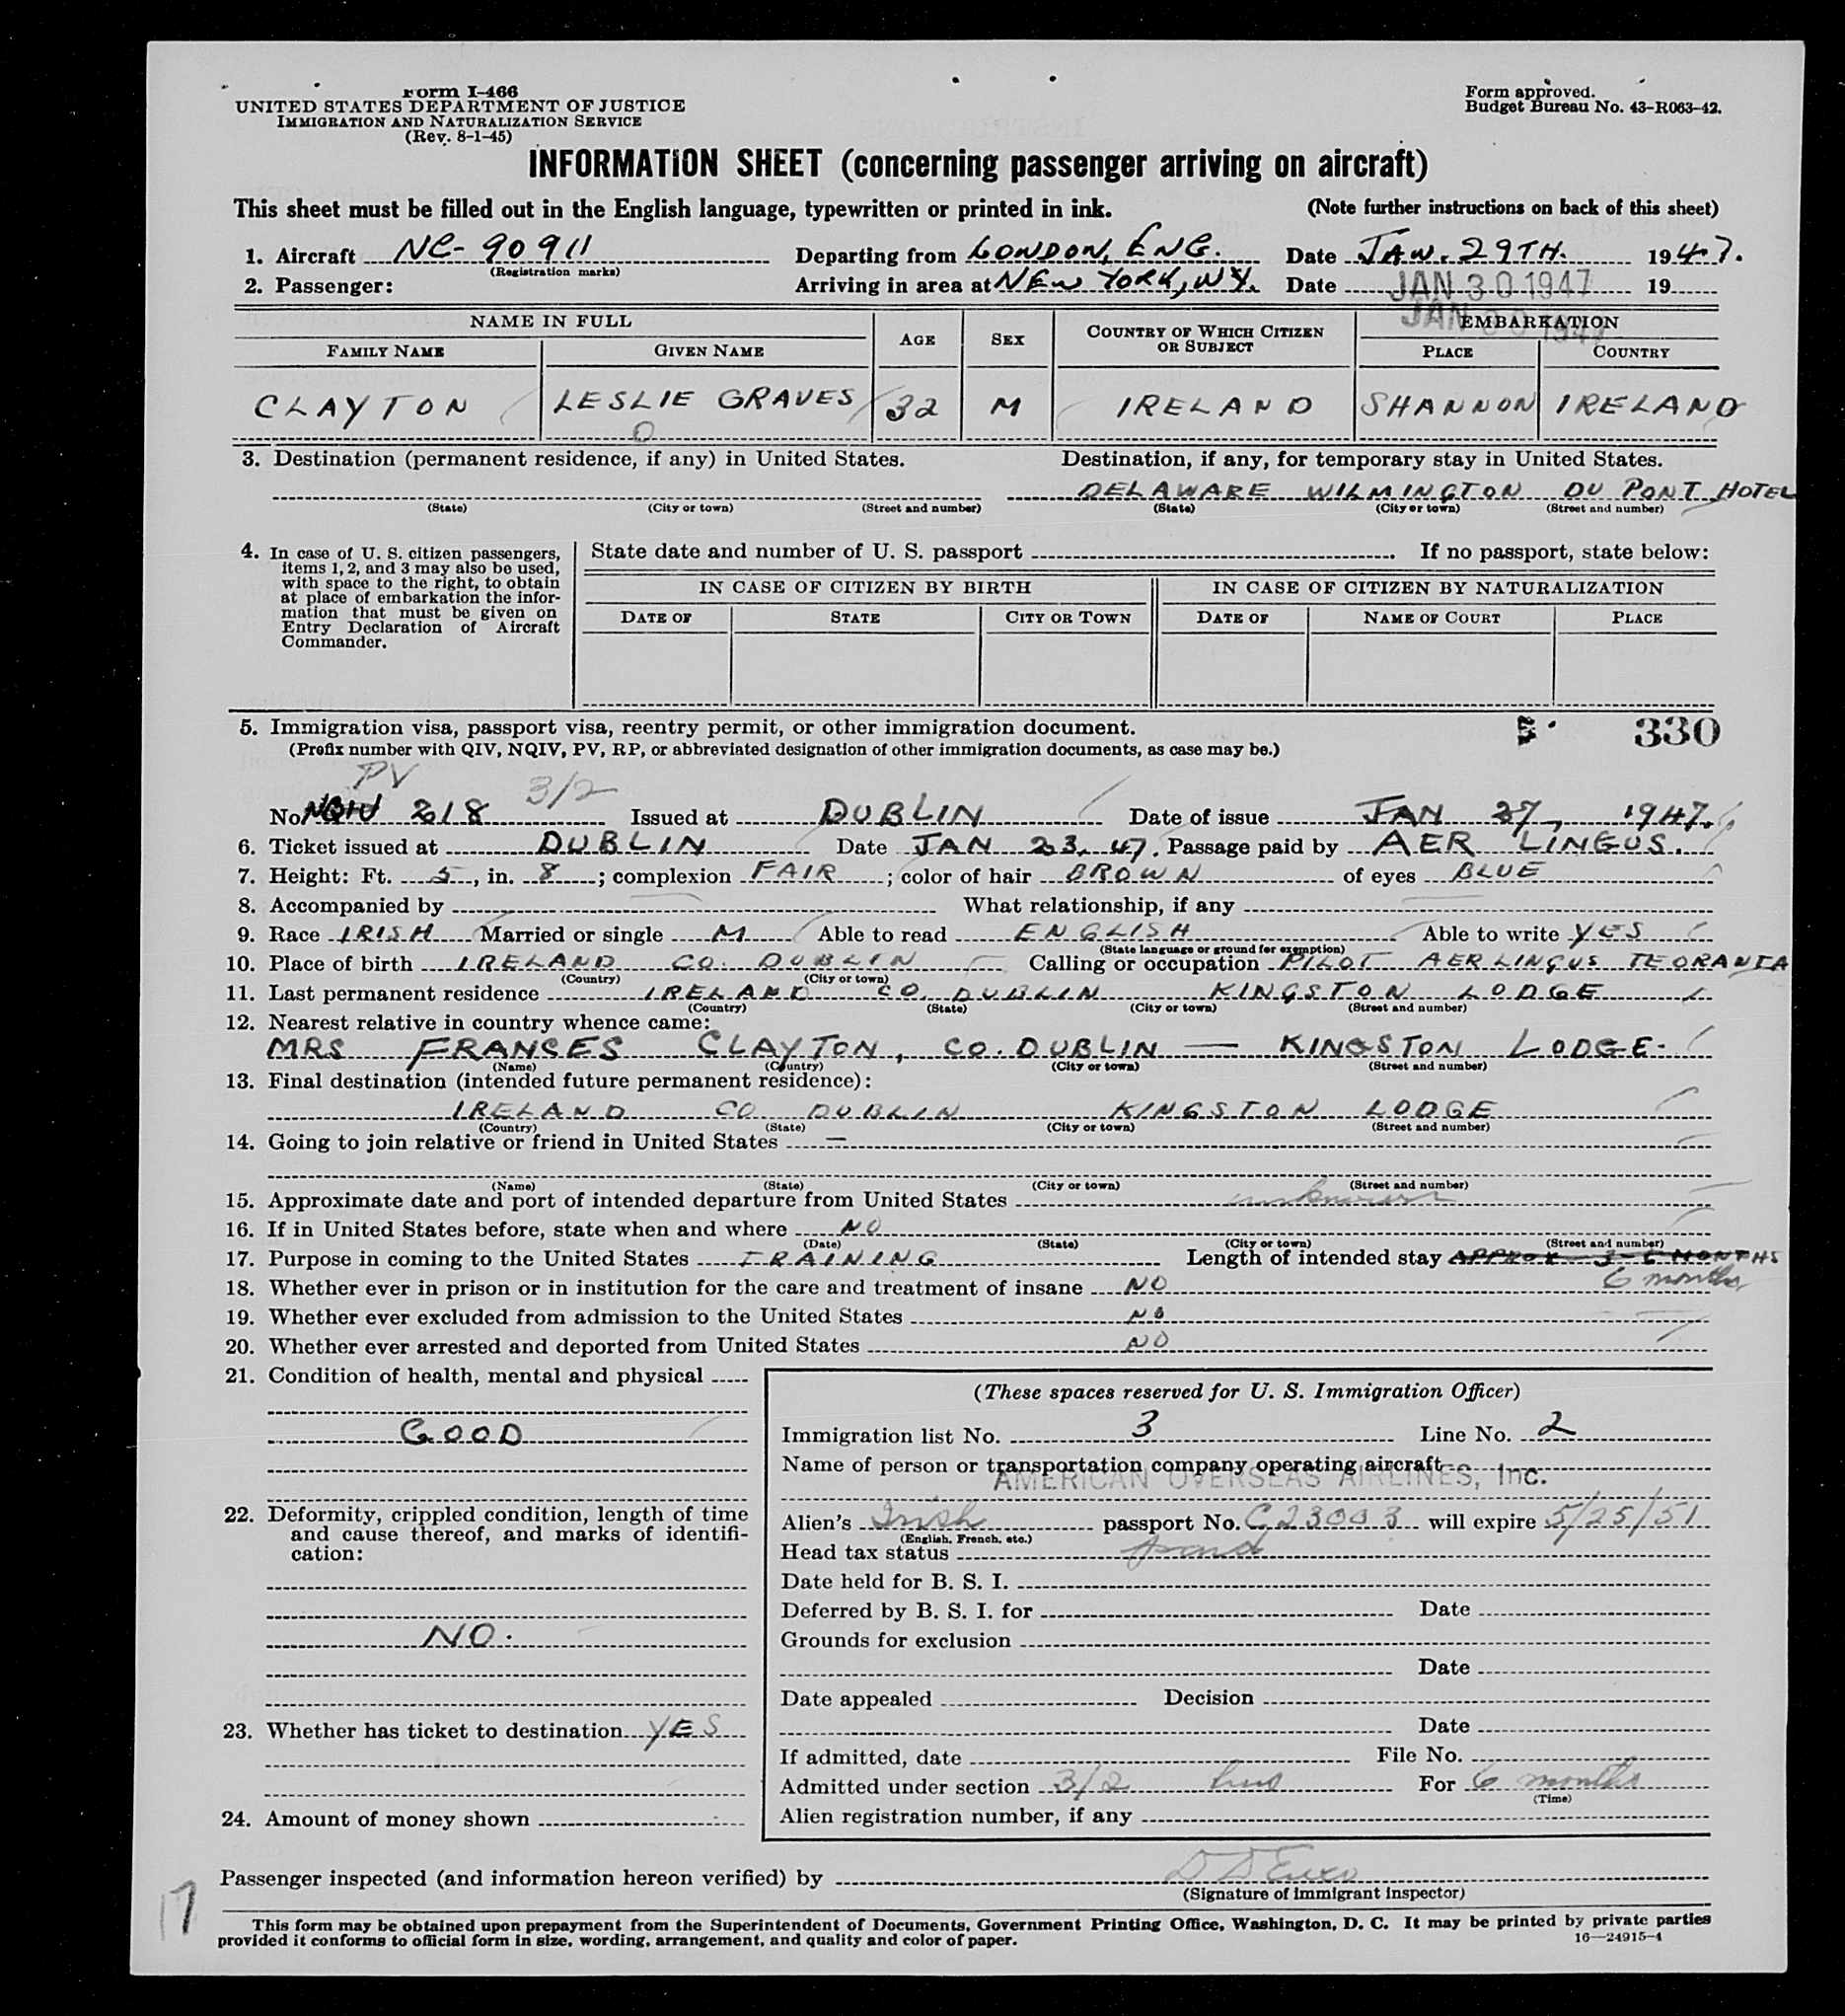 Form I-466
UNITED STATES DEPARTMENT OF JUSTICE
IMMIGRATION AND NATURALIZATION SERVICE
(Rev. 8-1-45)
Form approved.
Budget Bureau No. 43-R063-42.
INFORMATION SHEET (concerning passenger arriving on aircraft)
This sheet must be filled out in the English language, typewritten or printed in ink. (Note further instructions on back of this sheet)
1. Aircraft NC-90911 Departing from LONDON, ENG. Date JAN. 29TH. 1947.
(Registration marks)
2. Passenger: Arriving in area at NEW YORK, NY. Date JAN 30 1947 19
JAN 30 1947
NAME IN FULL AGE SEX COUNTRY OF WHICH CITIZEN OR SUBJECT EMBARKATION
FAMILY NAME GIVEN NAME PLACE COUNTRY
CLAYTON LESLIE GRAVES 32 M IRELAND SHANNON IRELAND
3. Destination (permanent residence, if any) in United States. Destination, if any, for temporary stay in United States.
DELAWARE WILMINGTON DU PONT HOTEL
(State) (City or town) (Street and number) (State) (City or town) (Street and number)
4. In case of U. S. citizen passengers, items 1, 2, and 3 may also be used, with space to the right, to obtain at place of embarkation the information that must be given on Entry Declaration of Aircraft Commander.
State date and number of U. S. passport . If no passport, state below:
IN CASE OF CITIZEN BY BIRTH IN CASE OF CITIZEN BY NATURALIZATION
DATE OF STATE CITY OR TOWN DATE OF NAME OF COURT PLACE
5. Immigration visa, passport visa, reentry permit, or other immigration document. 330
(Prefix number with QIV, NQIV, PV, RP, or abbreviated designation of other immigration documents, as case may be.)
PV 3/2
No. NQIV 218 Issued at DUBLIN Date of issue JAN 27, 1947.
6. Ticket issued at DUBLIN Date JAN 23. 47. Passage paid by AER LINGUS.
7. Height: Ft. 5, in. 8; complexion FAIR; color of hair BROWN of eyes BLUE
8. Accompanied by What relationship, if any
9. Race IRISH Married or single M Able to read ENGLISH Able to write YES
(State language or ground for exemption)
10. Place of birth IRELAND CO. DUBLIN Calling or occupation PILOT AER LINGUS TEORANTA
(Country) (City or town)
11. Last permanent residence IRELAND CO. DUBLIN KINGSTON LODGE
(Country) (State) (City or town) (Street and number)
12. Nearest relative in country whence came:
MRS FRANCES CLAYTON, CO. DUBLIN — KINGSTON LODGE.
(Name) (Country) (City or town) (Street and number)
13. Final destination (intended future permanent residence):
IRELAND CO DUBLIN KINGSTON LODGE
(Country) (State) (City or town) (Street and number)
14. Going to join relative or friend in United States —
(Name) (State) (City or town) (Street and number)
15. Approximate date and port of intended departure from United States unknown
16. If in United States before, state when and where NO
(Date) (State) (City or town) (Street and number)
17. Purpose in coming to the United States TRAINING Length of intended stay APPROX 3-6 MONTHS
6 months
18. Whether ever in prison or in institution for the care and treatment of insane NO
19. Whether ever excluded from admission to the United States NO
20. Whether ever arrested and deported from United States NO
21. Condition of health, mental and physical
GOOD
22. Deformity, crippled condition, length of time and cause thereof, and marks of identification:
NO.
23. Whether has ticket to destination YES
24. Amount of money shown
(These spaces reserved for U. S. Immigration Officer)
Immigration list No. 3 Line No. 2
Name of person or transportation company operating aircraft
AMERICAN OVERSEAS AIRLINES, Inc.
Alien's Irish passport No. C23003 will expire 5/25/51
(English, French, etc.)
Head tax status paid
Date held for B. S. I.
Deferred by B. S. I. for Date
Grounds for exclusion
Date
Date appealed Decision
Date
If admitted, date File No.
Admitted under section 3/2 bus For 6 months
(Time)
Alien registration number, if any
Passenger inspected (and information hereon verified) by
(Signature of immigrant inspector)
This form may be obtained upon prepayment from the Superintendent of Documents, Government Printing Office, Washington, D. C. It may be printed by private parties
provided it conforms to official form in size, wording, arrangement, and quality and color of paper.
16—24915-4
17